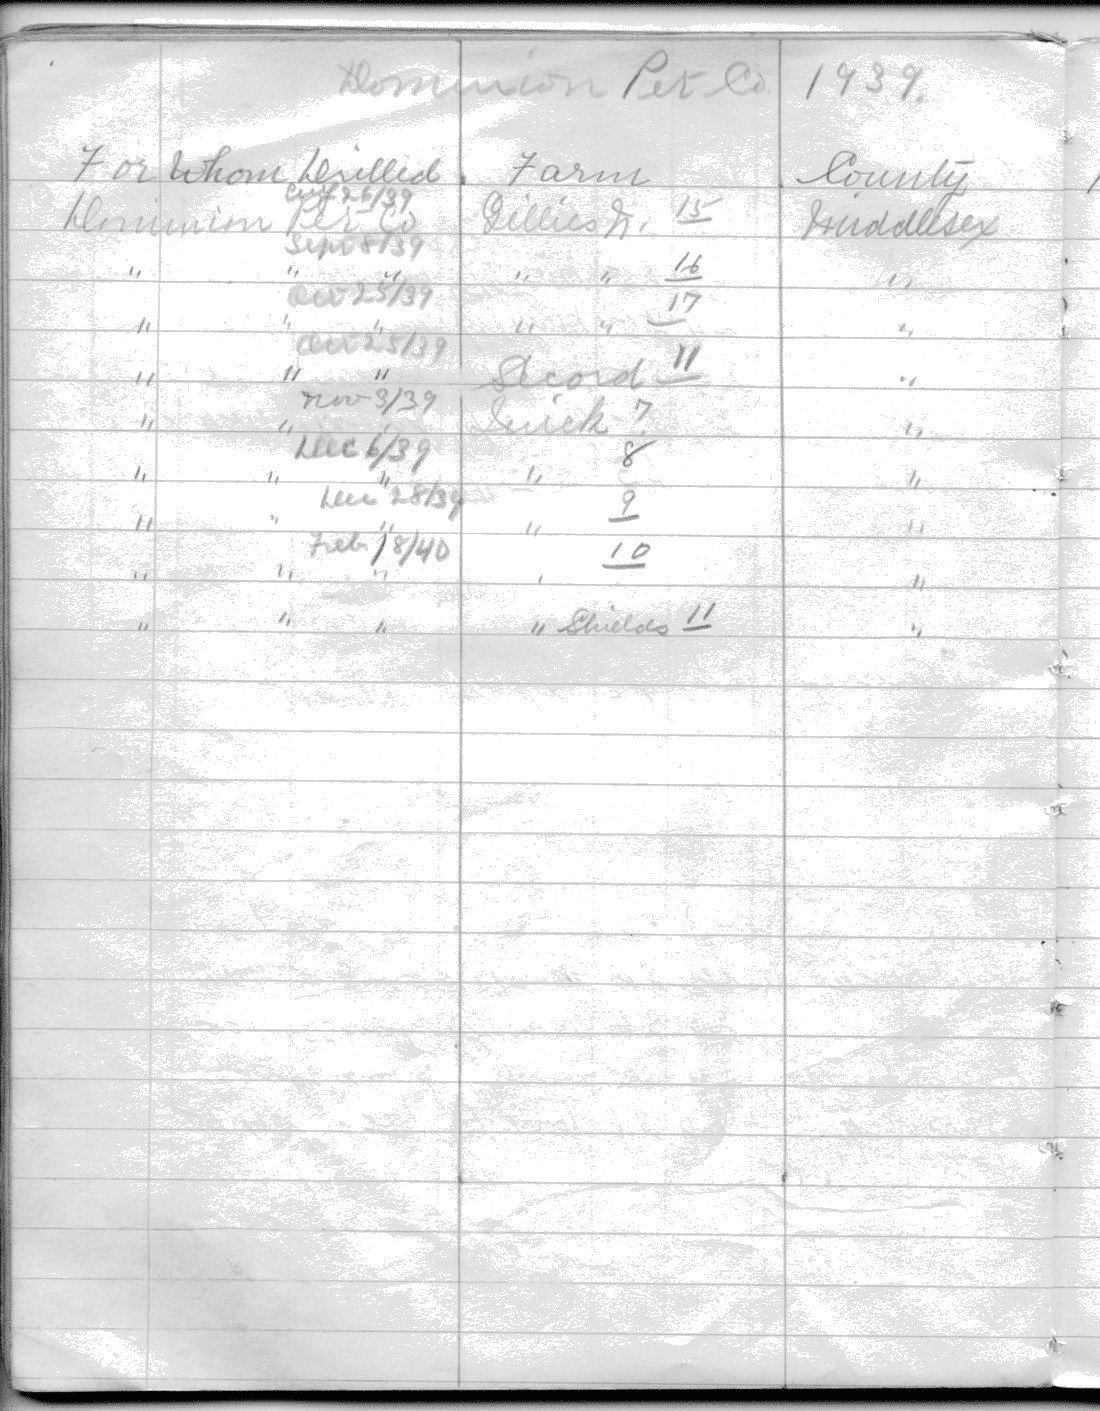 Dominion Pet. Co. 1939.
For Whom Drilled Farm County
Aug 26/39
Dominion Pet Co Gillies N. 15 Middlesex
Sept 8/39
" " " " " 16 "
Oct 25/39
" " " " " 17 "
Oct 25/39
" " " Secord 11 "
Nov 3/39
" " " Quick 7 "
Dec 6/39
" " " " 8 "
Dec 28/39
" " " " 9 "
Feb 18/40
" " " " 10 "
" " " " Shields 11 "